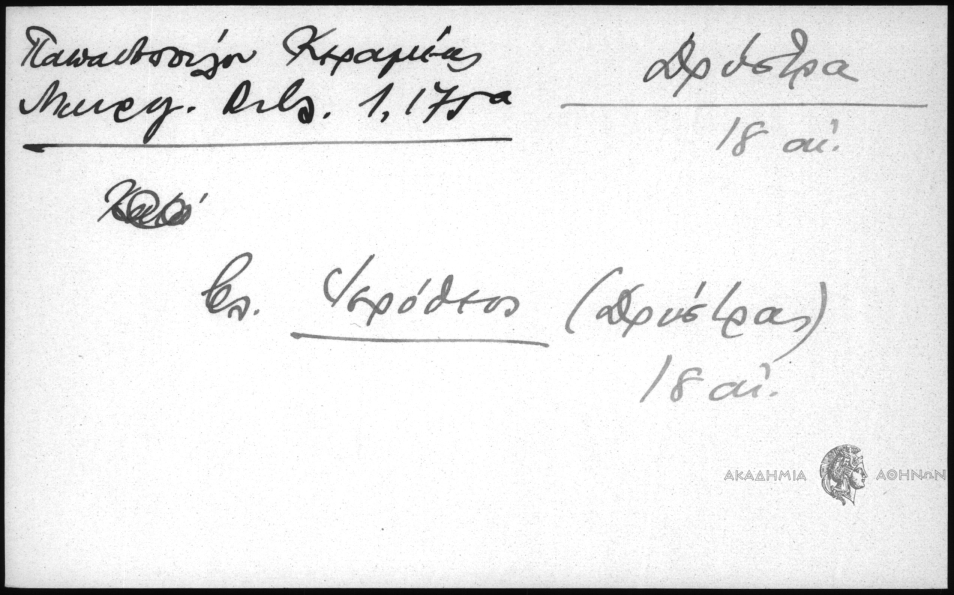 Παπαδοπούλου Κεραμέως
Μαυρογ. Βιβλ. 1,175α
Δρύστρα
18 αἰ.
βλ. Ἱερόθεος (Δρύστρας)
18 αἰ.
ΑΚΑΔΗΜΙΑ ΑΘΗΝΩΝ